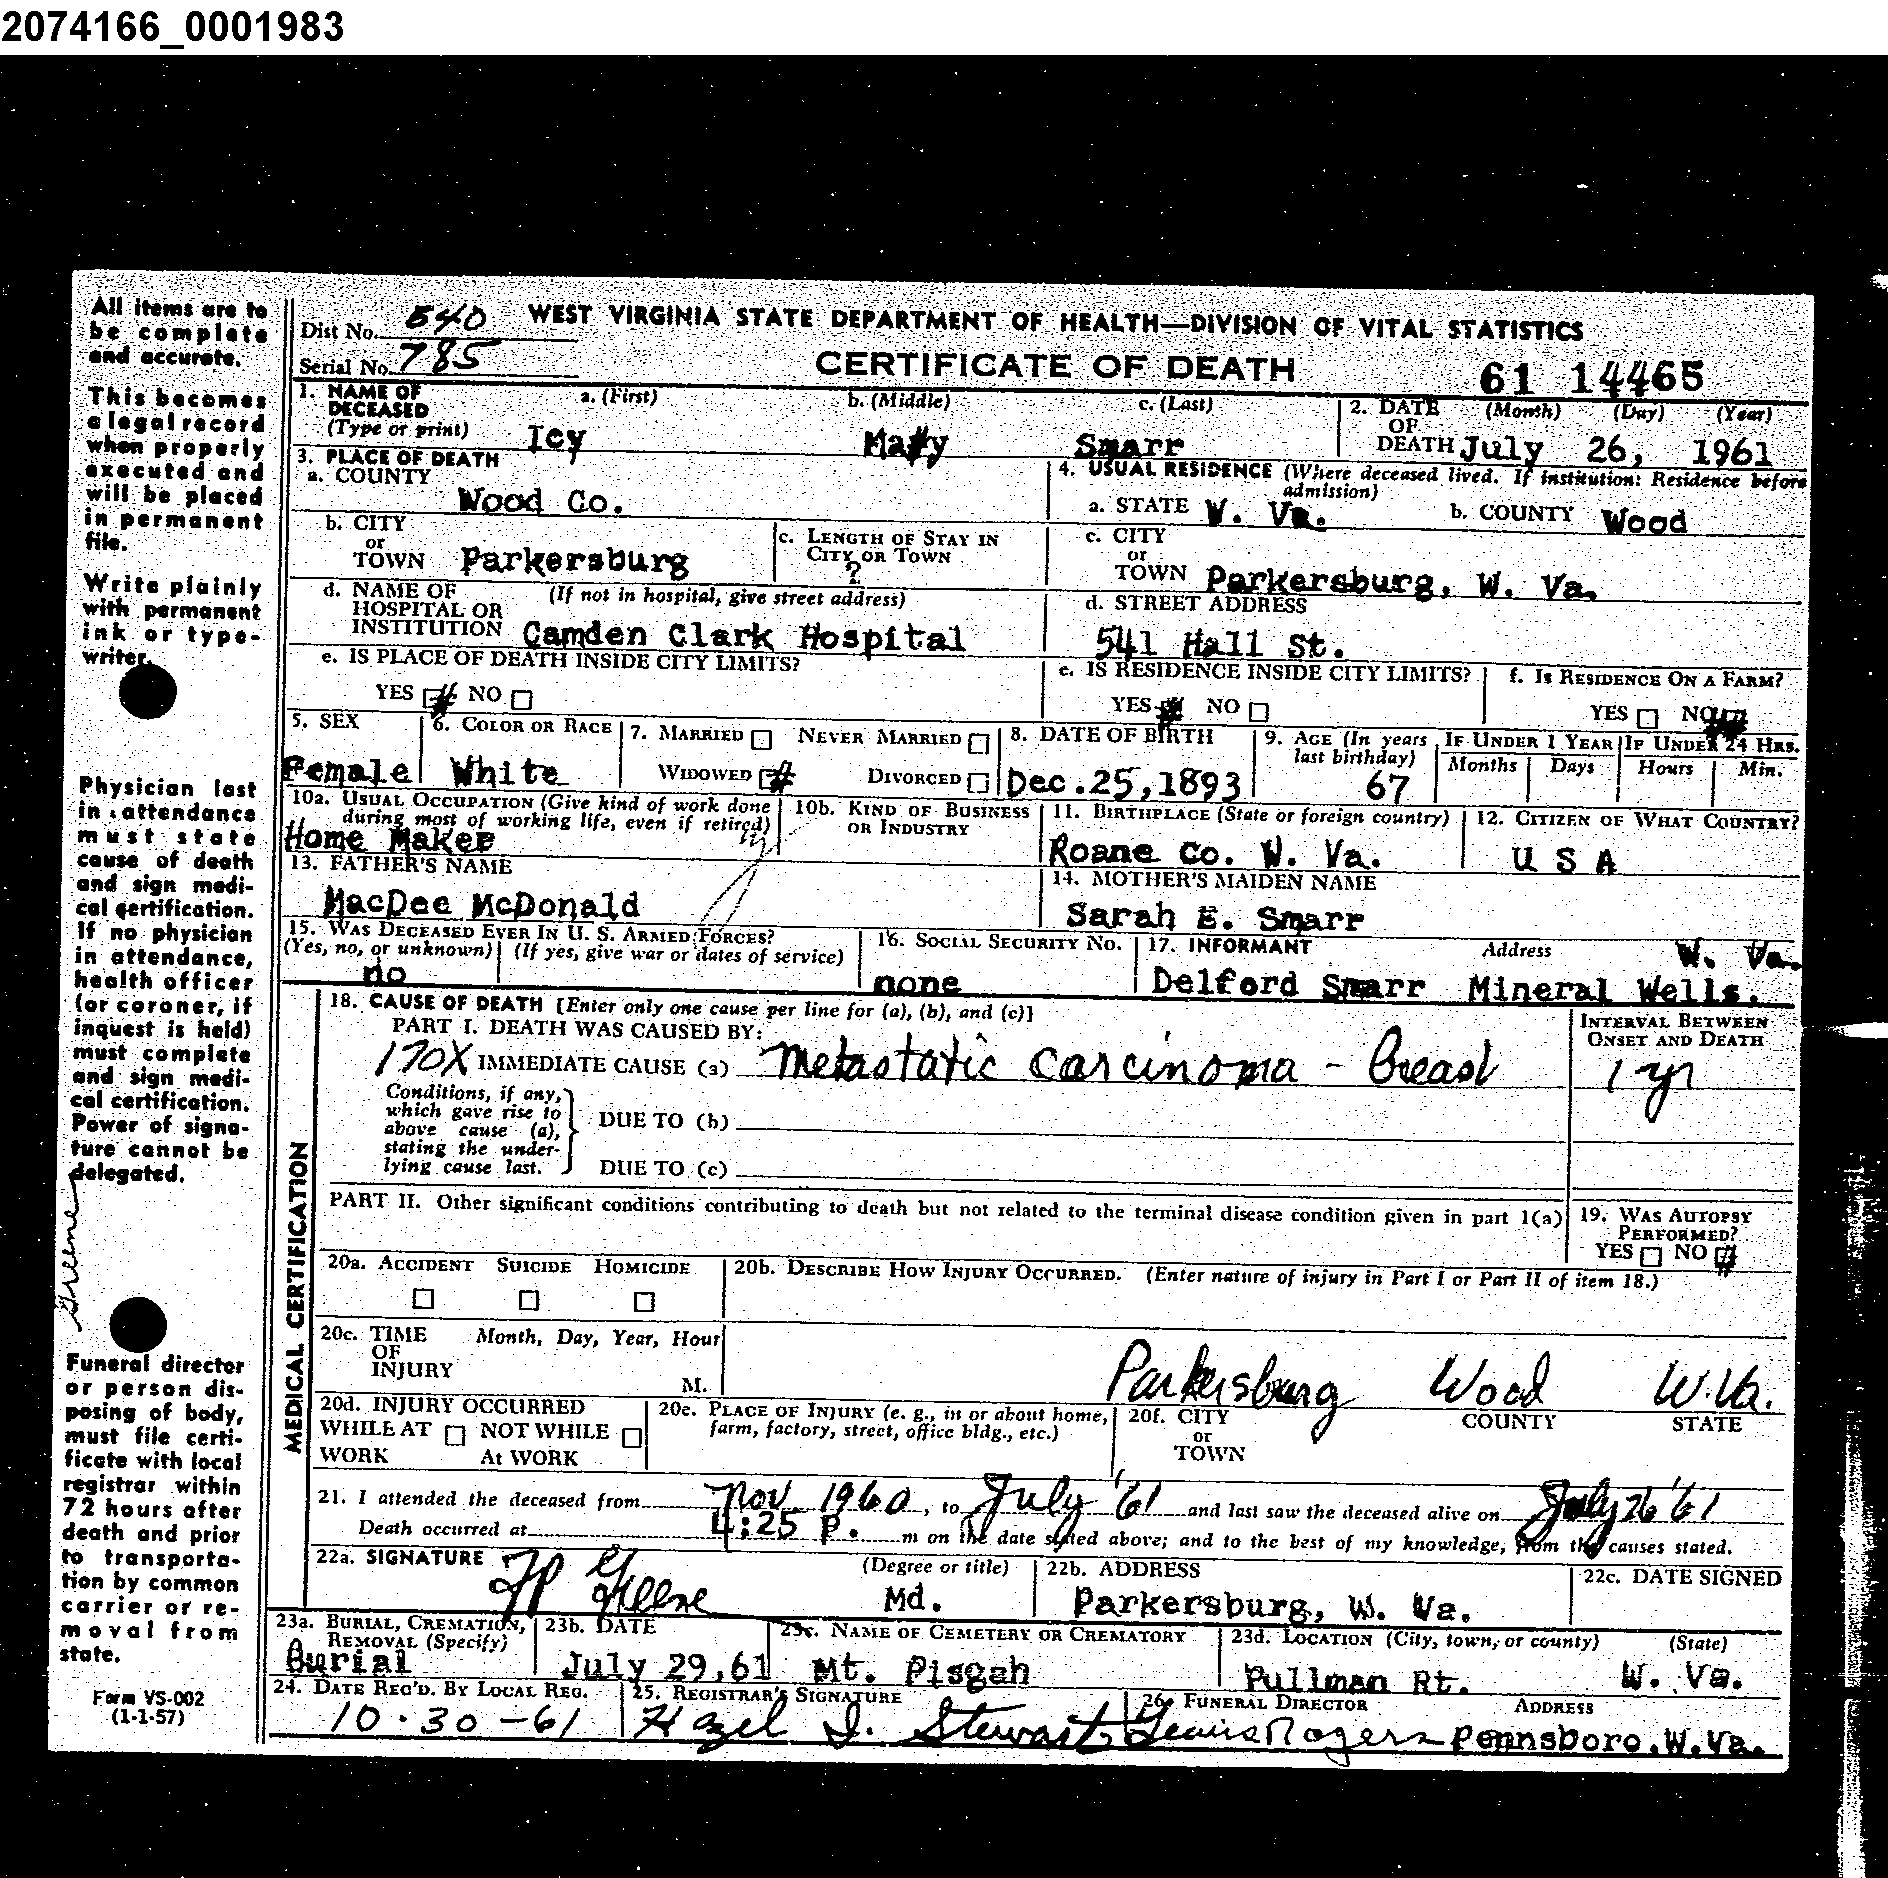 2074166_0001983
All items are to
be complete
and accurate.
This becomes
a legal record
when properly
executed and
will be placed
in permanent
file.
Write plainly
with permanent
ink or type-
writer.
Physician last
in attendance
must state
cause of death
and sign medi-
cal certification.
If no physician
in attendance,
health officer
(or coroner, if
inquest is held)
must complete
and sign medi-
cal certification.
Power of signa-
ture cannot be
delegated.
Greene
Funeral director
or person dis-
posing of body,
must file certi-
ficate with local
registrar within
72 hours after
death and prior
to transporta-
tion by common
carrier or re-
moval from
state.
Form VS-002
(1-1-57)
Dist No. 540 WEST VIRGINIA STATE DEPARTMENT OF HEALTH—DIVISION OF VITAL STATISTICS
Serial No. 785 CERTIFICATE OF DEATH 61 14465
1. NAME OF DECEASED (Type or print) a. (First) b. (Middle) c. (Last) 2. DATE OF DEATH (Month) (Day) (Year)
Icy Mary Smarr July 26, 1961
3. PLACE OF DEATH 4. USUAL RESIDENCE (Where deceased lived. If institution: Residence before admission)
a. COUNTY Wood Co. a. STATE W. Va. b. COUNTY Wood
b. CITY or TOWN Parkersburg c. LENGTH OF STAY IN CITY OR TOWN ? c. CITY or TOWN Parkersburg, W. Va.
d. NAME OF HOSPITAL OR INSTITUTION (If not in hospital, give street address) Camden Clark Hospital d. STREET ADDRESS 541 Hall St.
e. IS PLACE OF DEATH INSIDE CITY LIMITS? e. IS RESIDENCE INSIDE CITY LIMITS? f. IS RESIDENCE ON A FARM?
YES # NO YES # NO YES NO ##
5. SEX 6. COLOR OR RACE 7. MARRIED NEVER MARRIED 8. DATE OF BIRTH 9. AGE (In years last birthday) IF UNDER 1 YEAR IF UNDER 24 HRS.
Female White WIDOWED # DIVORCED Dec.25,1893 67 Months Days Hours Min.
10a. USUAL OCCUPATION (Give kind of work done during most of working life, even if retired) 10b. KIND OF BUSINESS OR INDUSTRY 11. BIRTHPLACE (State or foreign country) 12. CITIZEN OF WHAT COUNTRY?
Home Maker Roane Co. W. Va. U S A
13. FATHER'S NAME 14. MOTHER'S MAIDEN NAME
MacDee McDonald Sarah E. Smarr
15. WAS DECEASED EVER IN U. S. ARMED FORCES? 16. SOCIAL SECURITY NO. 17. INFORMANT Address W. Va.
(Yes, no, or unknown) (If yes, give war or dates of service)
no none Delford Smarr Mineral Wells.
MEDICAL CERTIFICATION
18. CAUSE OF DEATH [Enter only one cause per line for (a), (b), and (c)] INTERVAL BETWEEN ONSET AND DEATH
PART I. DEATH WAS CAUSED BY:
170X IMMEDIATE CAUSE (a) Metastatic carcinoma - Breast 1 yr
Conditions, if any, which gave rise to above cause (a), stating the under- lying cause last.
DUE TO (b)
DUE TO (c)
PART II. Other significant conditions contributing to death but not related to the terminal disease condition given in part 1(a) 19. WAS AUTOPSY PERFORMED?
YES NO #
20a. ACCIDENT SUICIDE HOMICIDE 20b. DESCRIBE HOW INJURY OCCURRED. (Enter nature of injury in Part I or Part II of item 18.)
20c. TIME OF INJURY Month, Day, Year, Hour M.
Parkersburg Wood W.Va.
20d. INJURY OCCURRED WHILE AT WORK NOT WHILE At WORK 20e. PLACE OF INJURY (e. g., in or about home, farm, factory, street, office bldg., etc.) 20f. CITY or TOWN COUNTY STATE
21. I attended the deceased from Nov. 1960, to July '61 and last saw the deceased alive on July 26 '61
Death occurred at 4:25 P. m on the date stated above; and to the best of my knowledge, from the causes stated.
22a. SIGNATURE (Degree or title) 22b. ADDRESS 22c. DATE SIGNED
Greene Md. Parkersburg, W. Va.
23a. BURIAL, CREMATION, REMOVAL (Specify) 23b. DATE 23c. NAME OF CEMETERY OR CREMATORY 23d. LOCATION (City, town, or county) (State)
Burial July 29,61 Mt. Pisgah Pullman Rt. W. Va.
24. DATE REC'D. BY LOCAL REG. 25. REGISTRAR'S SIGNATURE 26. FUNERAL DIRECTOR ADDRESS
10-30-61 Hazel I. Stewart Rogers Pennsboro.W.Va.